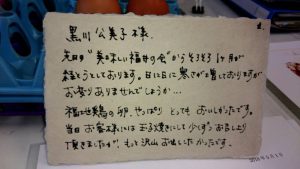 黒川 公美子 様
先日の"美味しい福井の会"からそろそろ1ヶ月が
経とうとしております。日に日に寒さが増しておりますが
お変りありませんでしょうか…
福地鶏の卵、やっぱり とっても おいしかったです。
当日 お客様には お子焼きにして 少しずつ お出しより
頂きましたが、もっと沢山 お出ししたかったです。